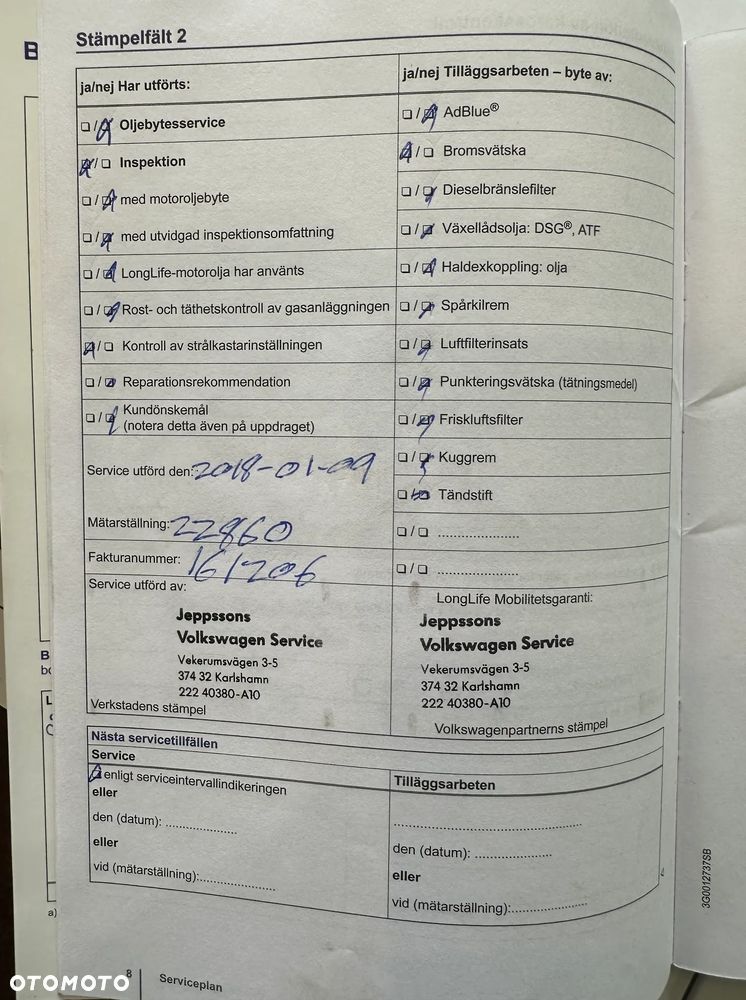 Stämpelfält 2
ja/nej Har utförts:
☐/☑ Oljebytesservice
☑/☐ Inspektion
☐/☑ med motoroljebyte
☐/☑ med utvidgad inspektionsomfattning
☐/☑ LongLife-motorolja har använts
☐/☑ Rost- och täthetskontroll av gasanläggningen
☑/☐ Kontroll av strålkastarinställningen
☐/☑ Reparationsrekommendation
☐/☑ Kundönskemål
(notera detta även på uppdraget)
Service utförd den: 2018-01-09
Mätarställning: 22860
Fakturanummer: 161206
Service utförd av:
Jeppssons
Volkswagen Service
Vekerumsvägen 3-5
374 32 Karlshamn
222 40380-A10
Verkstadens stämpel
ja/nej Tilläggsarbeten – byte av:
☐/☑ AdBlue®
☑/☐ Bromsvätska
☐/☑ Dieselbränslefilter
☐/☑ Växellådsolja: DSG®, ATF
☐/☑ Haldexkoppling: olja
☐/☑ Spårkilrem
☐/☑ Luftfilterinsats
☐/☑ Punkteringsvätska (tätningsmedel)
☐/☑ Friskluftsfilter
☐/☑ Kuggrem
☐/☑ Tändstift
☐/☐ ....................
☐/☐ ....................
LongLife Mobilitetsgaranti:
Jeppssons
Volkswagen Service
Vekerumsvägen 3-5
374 32 Karlshamn
222 40380-A10
Volkswagenpartnerns stämpel
Nästa servicetillfällen
Service
☑ enligt serviceintervallindikeringen
eller
den (datum): ..................
eller
vid (mätarställning):...................
Tilläggsarbeten
..............................................
den (datum): ...................
eller
vid (mätarställning):...................
8 Serviceplan
3G0012737SB
B
B
a)
OTOMOTO